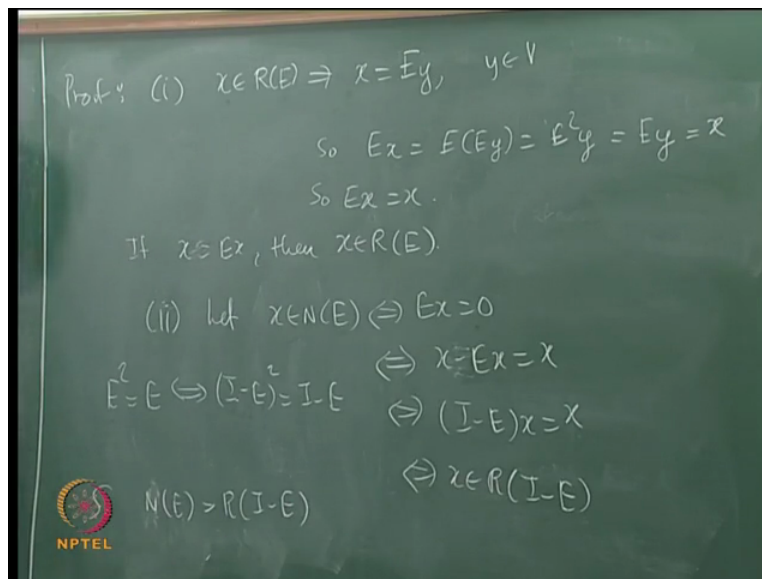 Proof: (i) x∈R(E) ⇒ x = Ey, y∈V
So Ex = E(Ey) = E²y = Ey = x
So Ex = x.
If x = Ex, then x∈R(E).
(ii) Let x∈N(E) ⇔ Ex = 0
⇔ x - Ex = x
E² = E ⇔ (I-E)² = I-E
⇔ (I-E)x = x
⇔ x∈R(I-E)
N(E) = R(I-E)
NPTEL